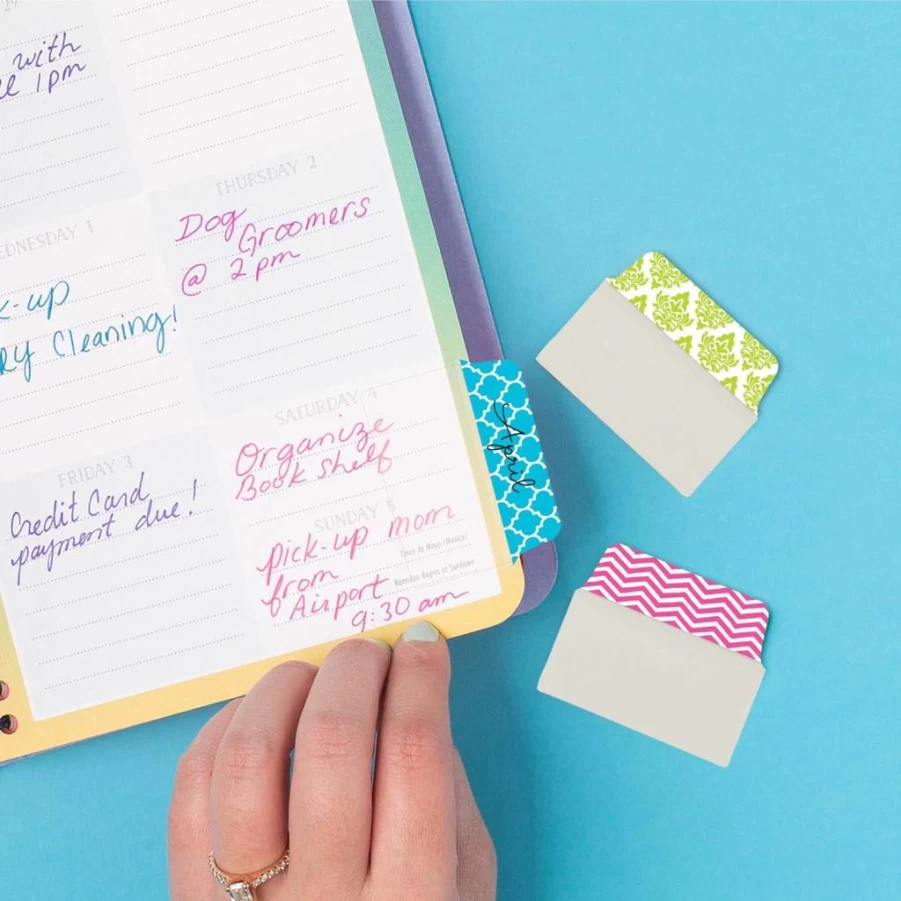 with
1pm
THURSDAY 2
Dog
Groomers
@ 2pm
WEDNESDAY 1
-up
Cleaning!
SATURDAY 4
Organize
Book shelf
FRIDAY 3
Credit Card
payment due!
SUNDAY 5
Pick-up mom
from
Airport
9:30 am
Cinco de Mayo (Mexico)
Ramadan Begins at Sundown
April